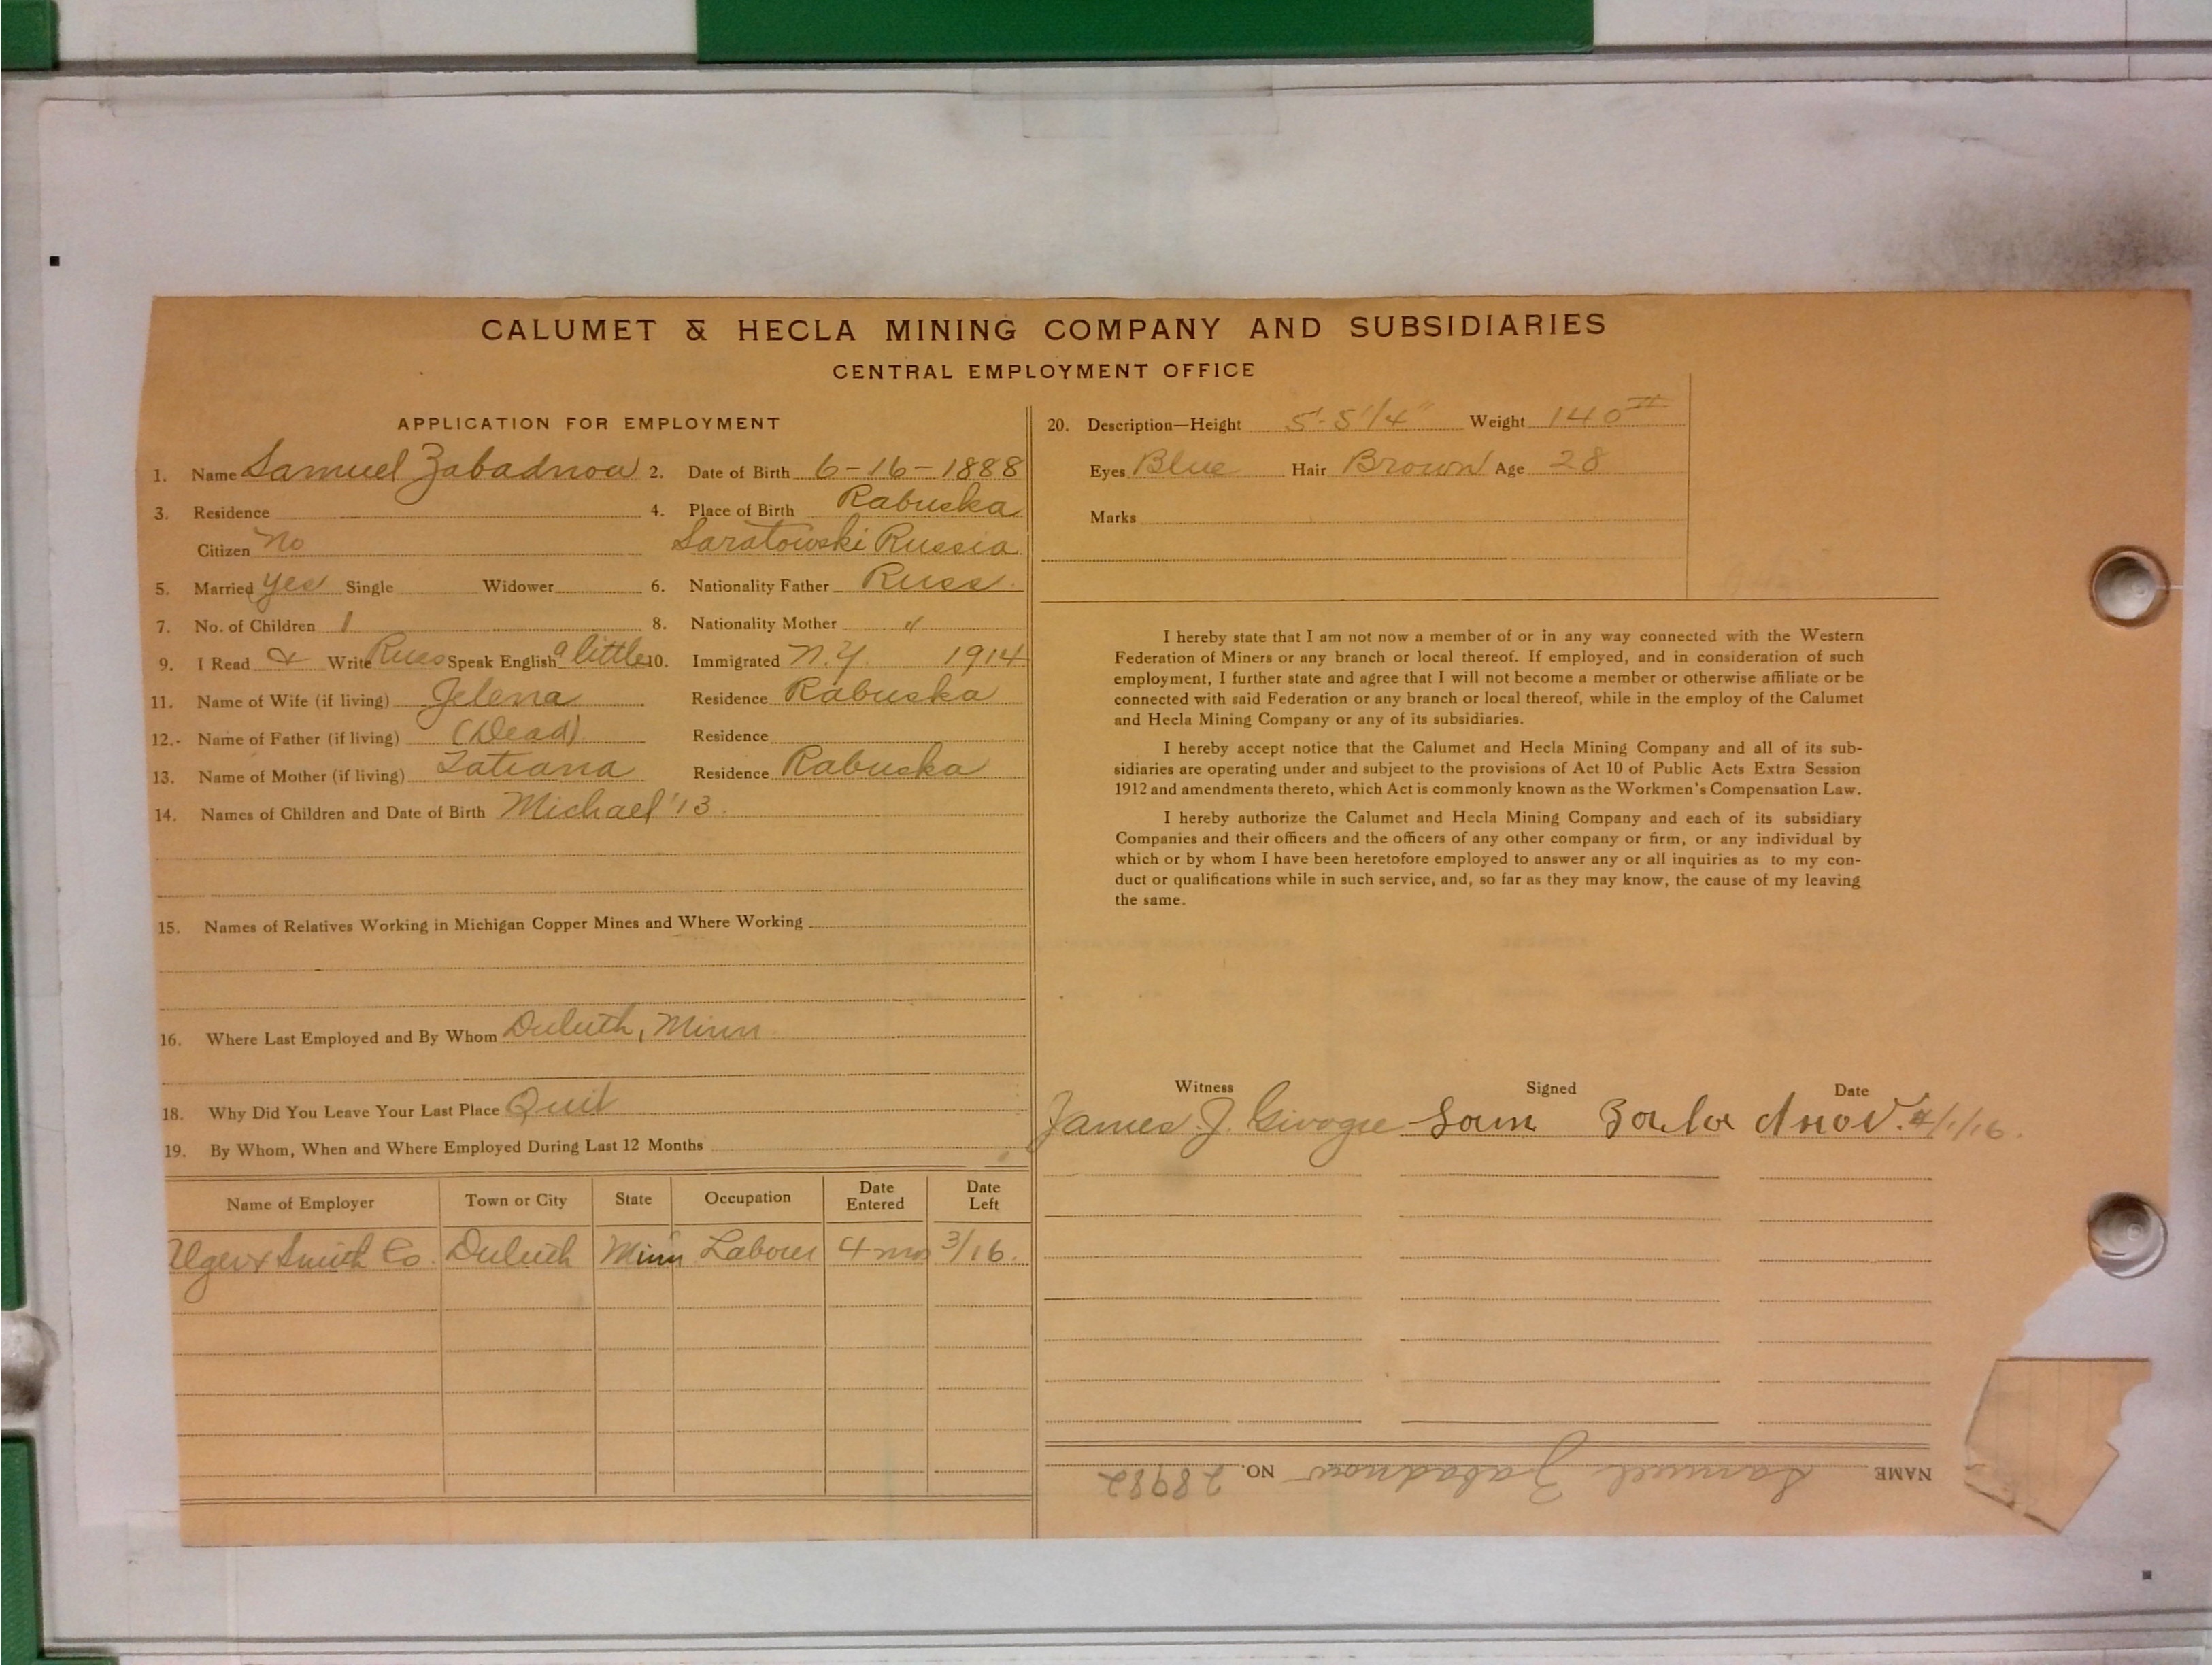 CALUMET & HECLA MINING COMPANY AND SUBSIDIARIES
CENTRAL EMPLOYMENT OFFICE
APPLICATION FOR EMPLOYMENT
1. Name Samuel Zabadnow 2. Date of Birth 6-16-1888
3. Residence 4. Place of Birth Rabuska
Citizen No Saratowski Russia
5. Married yes Single Widower 6. Nationality Father Russ.
7. No. of Children 1 8. Nationality Mother "
9. I Read & Write Russ Speak English a little 10. Immigrated N.Y. 1914
11. Name of Wife (if living) Jelena Residence Rabuska
12. Name of Father (if living) (Dead) Residence
13. Name of Mother (if living) Tatiana Residence Rabuska
14. Names of Children and Date of Birth Michael '13
15. Names of Relatives Working in Michigan Copper Mines and Where Working
16. Where Last Employed and By Whom Duluth, Minn
18. Why Did You Leave Your Last Place Quit
19. By Whom, When and Where Employed During Last 12 Months
Name of Employer Town or City State Occupation Date Entered Date Left
Alger & Smith Co. Duluth Minn Labour 4 mo 3/16.
20. Description—Height 5'-5 1/4" Weight 140 #
Eyes Blue Hair Brown Age 28
Marks
I hereby state that I am not now a member of or in any way connected with the Western
Federation of Miners or any branch or local thereof. If employed, and in consideration of such
employment, I further state and agree that I will not become a member or otherwise affiliate or be
connected with said Federation or any branch or local thereof, while in the employ of the Calumet
and Hecla Mining Company or any of its subsidiaries.
I hereby accept notice that the Calumet and Hecla Mining Company and all of its sub-
sidiaries are operating under and subject to the provisions of Act 10 of Public Acts Extra Session
1912 and amendments thereto, which Act is commonly known as the Workmen's Compensation Law.
I hereby authorize the Calumet and Hecla Mining Company and each of its subsidiary
Companies and their officers and the officers of any other company or firm, or any individual by
which or by whom I have been heretofore employed to answer any or all inquiries as to my con-
duct or qualifications while in such service, and, so far as they may know, the cause of my leaving
the same.
Witness Signed Date
James J. Sam Zabadnov. 4/1/16.
NAME Samuel Zabadnow NO. 28982